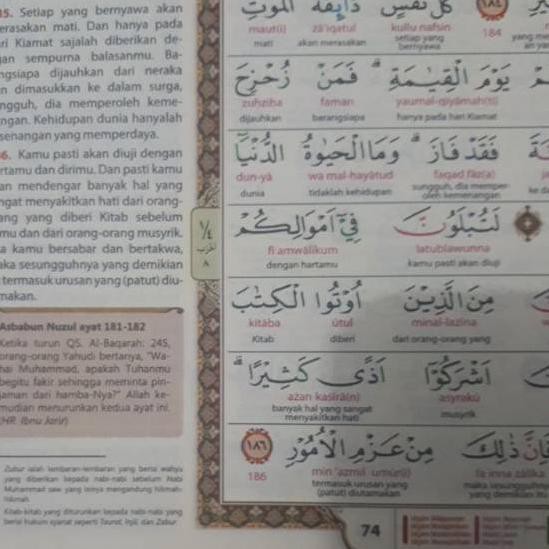 85. Setiap yang bernyawa akan
merasakan mati. Dan hanya pada
hari Kiamat sajalah diberikan de-
ngan sempurna balasanmu. Ba-
rangsiapa dijauhkan dari neraka
dan dimasukkan ke dalam surga,
sungguh, dia memperoleh keme-
nangan. Kehidupan dunia hanyalah
kesenangan yang memperdaya.
86. Kamu pasti akan diuji dengan
hartamu dan dirimu. Dan pasti kamu
akan mendengar banyak hal yang
sangat menyakitkan hati dari orang-
orang yang diberi Kitab sebelum
kamu dan dari orang-orang musyrik.
Jika kamu bersabar dan bertakwa,
maka sesungguhnya yang demikian
termasuk urusan yang (patut) diu-
tamakan.
Asbabun Nuzul ayat 181-182
Ketika turun QS. Al-Baqarah: 245,
orang-orang Yahudi bertanya, "Wa-
hai Muhammad, apakah Tuhanmu
begitu fakir sehingga meminta pin-
jaman dari hamba-Nya?" Allah ke-
mudian menurunkan kedua ayat ini.
(HR. Ibnu Jarir)
Zubur ialah lembaran-lembaran yang berisi wahyu
yang diberikan kepada nabi-nabi sebelum Nabi
Muhammad saw yang isinya mengandung hikmah-
hikmah.
Kitab-kitab yang diturunkan kepada nabi-nabi yang
berisi hukum syariat seperti Taurat, Injil, dan Zabur.
كُلُّ نَفْسٍ ذَاۤىِٕقَةُ الْمَوْتِ
184 kullu nafsin żā'iqatul mauti(i)
setiap yang bernyawa akan merasakan mati
يَوْمَ الْقِيٰمَةِ ۗ فَمَنْ زُحْزِحَ
yaumal-qiyāmah(ti) faman zuḥziḥa
hanya pada hari Kiamat barangsiapa dijauhkan
فَقَدْ فَازَ ۗ وَمَا الْحَيٰوةُ الدُّنْيَآ
faqad fāz(a) wa mal-ḥayātud dun-yā
sungguh, dia memper-oleh kemenangan tidaklah kehidupan dunia
لَتُبْلَوُنَّ فِيْٓ اَمْوَالِكُمْ
latublawunna fī amwālikum
kamu pasti akan diuji dengan hartamu
مِنَ الَّذِيْنَ اُوْتُوا الْكِتٰبَ
minal-lażīna ūtul kitāba
dari orang-orang yang diberi Kitab
اَشْرَكُوْٓا اَذًى كَثِيْرًا ۗ
asyrakū ażan kaṡīrā(n)
musyrik banyak hal yang sangat menyakitkan hati
فَاِنَّ ذٰلِكَ مِنْ عَزْمِ الْاُمُوْرِ ١٨٦
fa inna żālika min 'azmil-umūr(i) 186
maka sesungguhnya yang demikian itu termasuk urusan yang (patut) diutamakan
74